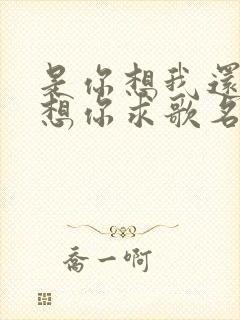 是你想我還
想你求歌名
喬一啊